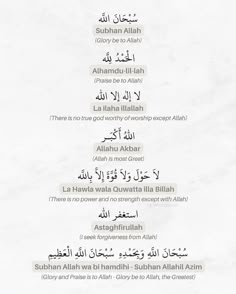 سُبْحَانَ اللَّه
Subhan Allah
(Glory be to Allah)
الْحَمْدُ لِلَّه
Alhamdu-lil-lah
(Praise be to Allah)
لا إِلَهَ إِلا اللَّه
La ilaha illallah
(There is no true god worthy of worship except Allah)
اللهُ أَكْبَر
Allahu Akbar
(Allah is most Great)
لاَ حَوْلَ وَلاَ قُوَّةَ إِلاَّ بِاللَّه
La Hawla wala Quwatta illa Billah
(There is no power and no strength except with Allah)
استغفر الله
Astaghfirullah
(I seek forgiveness from Allah)
سُبْحَانَ اللَّهِ وَبِحَمْدِهِ سُبْحَانَ اللَّهِ الْعَظِيمِ
Subhan Allah wa bi hamdihi - Subhan Allahil Azim
(Glory and Praise is to Allah - Glory be to Allah, the Greatest)